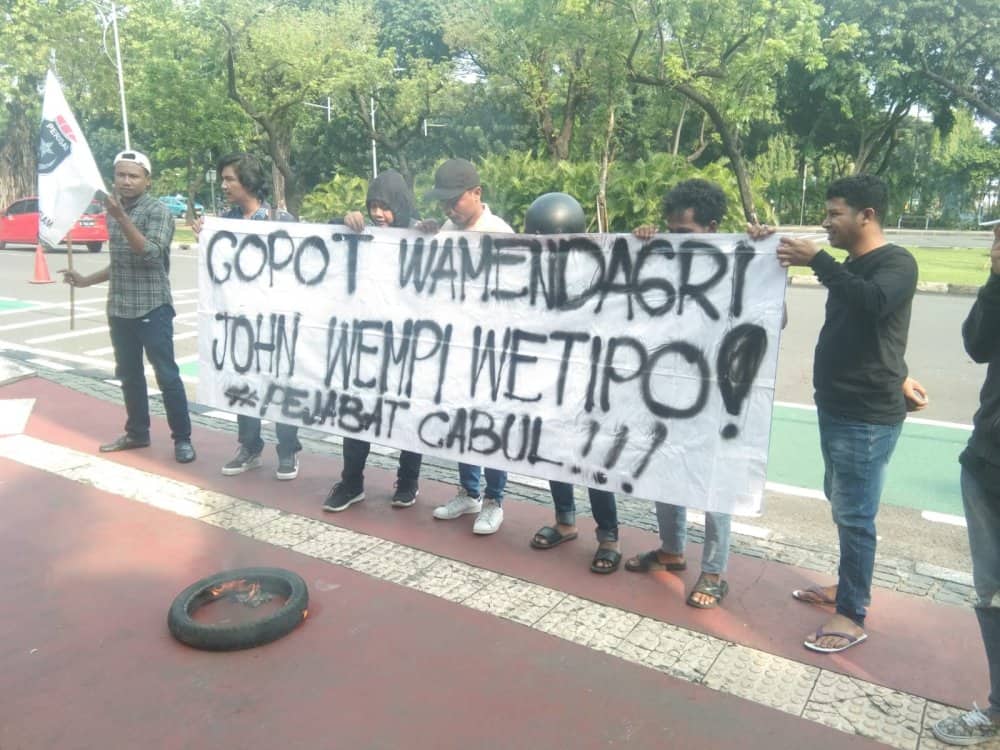 COPOT WAMENDAGRI
JOHN WEMPI WETIPO!
#PEJABAT CABUL!!!